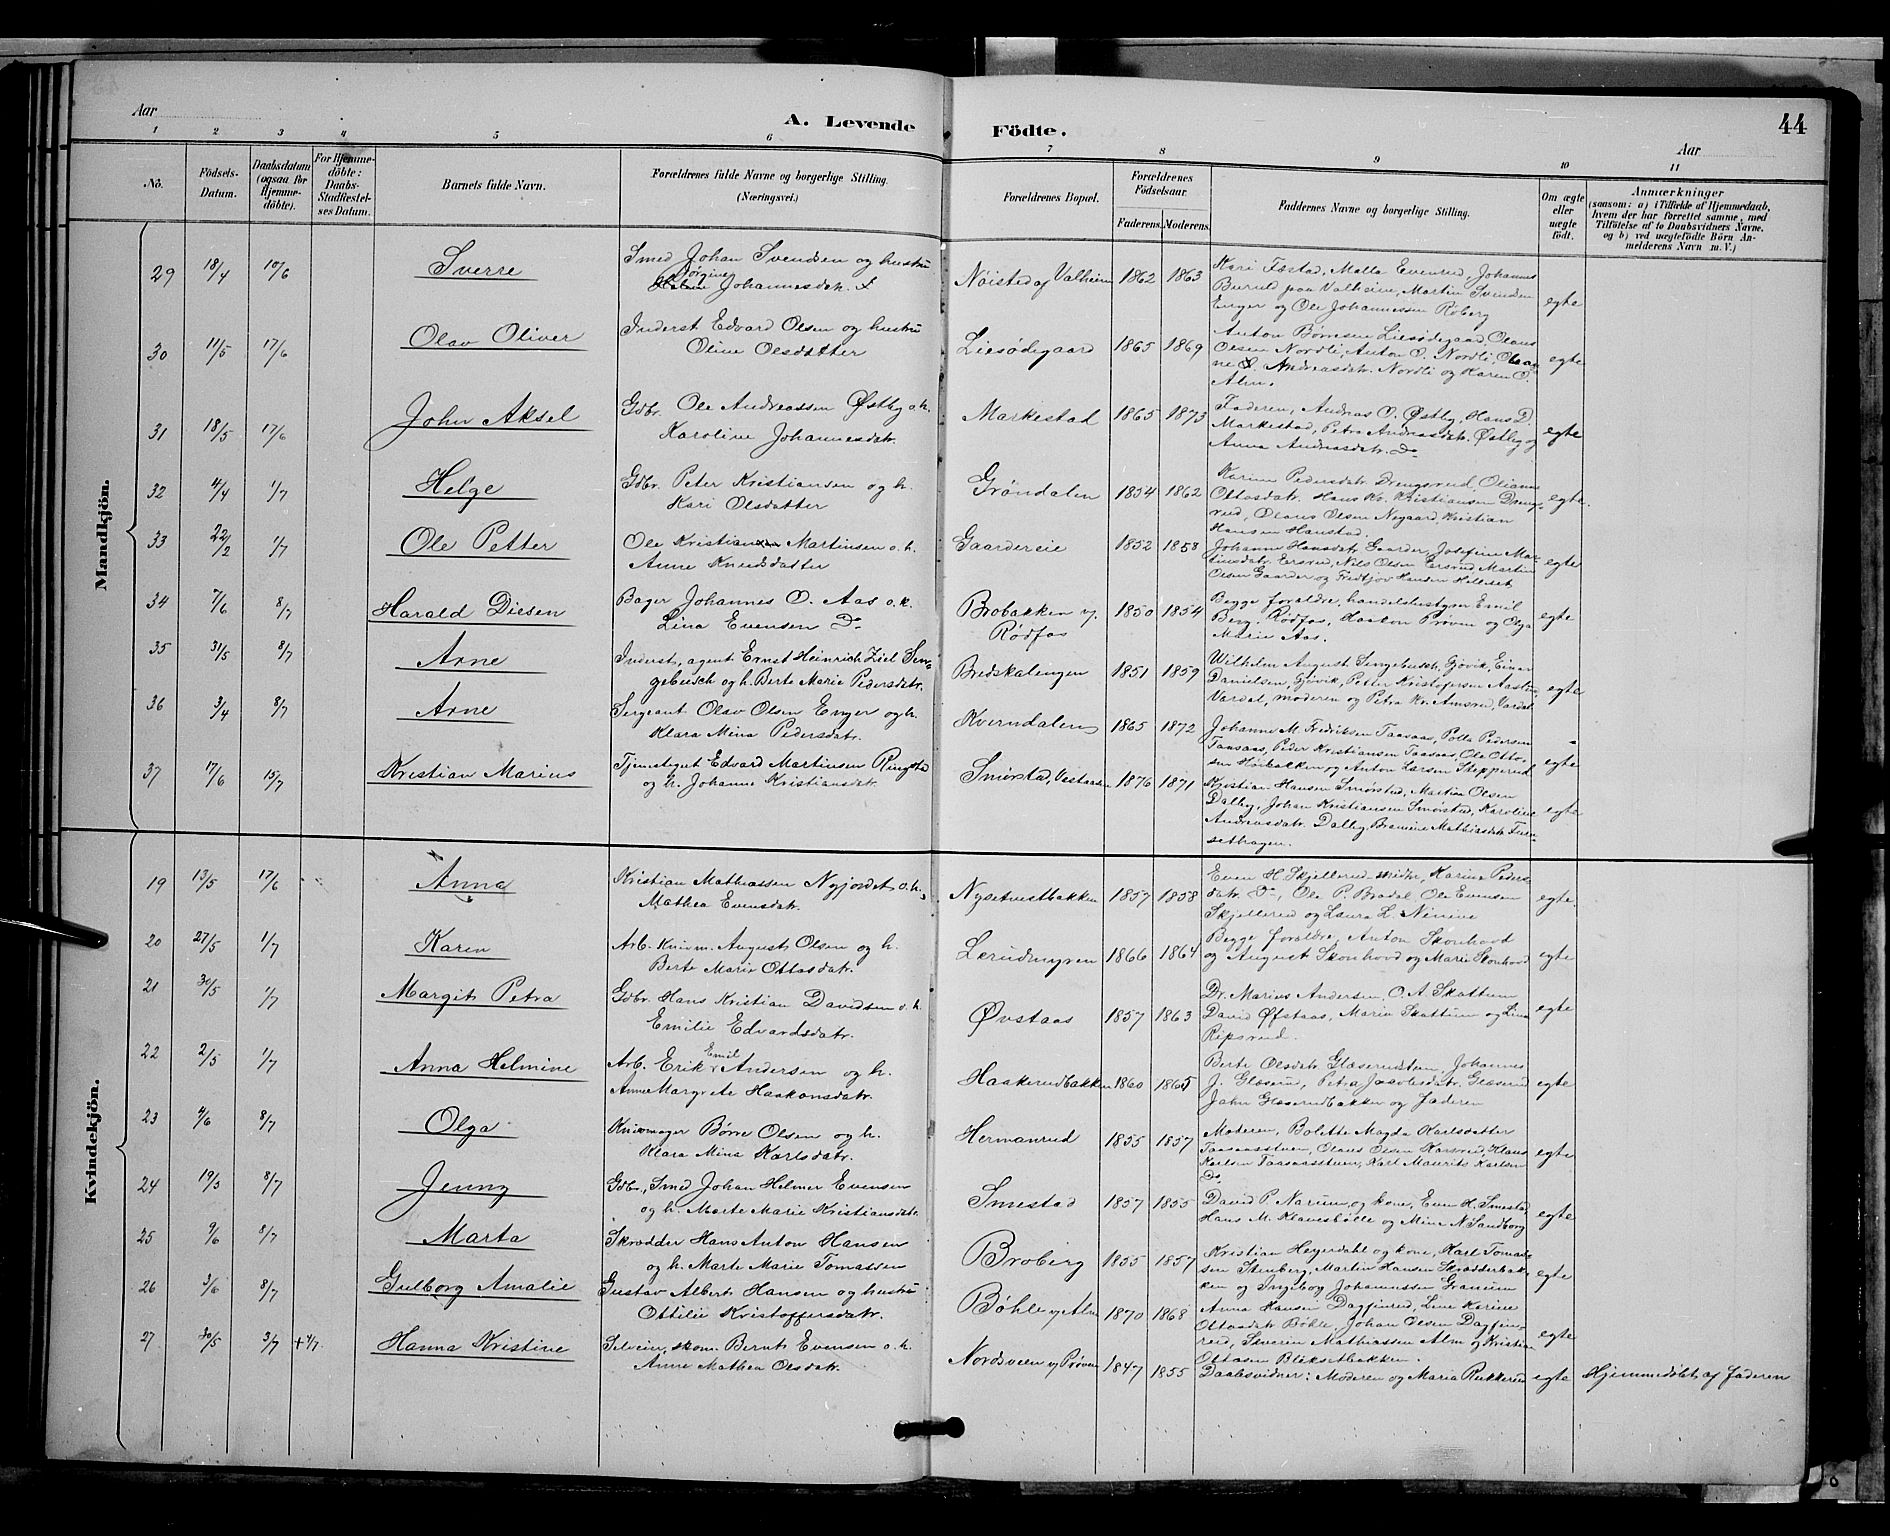 Aar
A. Levende
Födte.
44
Aar
1 2 3 4 5 6 7 8 9 10 11
No.
Födsels-
Datum.
Daabsdatum
(ogsaa for
Hjemme-
döbte).
For Hjemme-
döbte:
Daabs-
Stadfæstel-
ses Datum.
Barnets fulde Navn.
Forældrenes fulde Navne og borgerlige Stilling.
(Næringsvei.)
Forældrenes Bopæl.
Forældrenes
Födselsaar.
Faderens. Moderens.
Faddernes Navne og borgerlige Stilling.
Om ægte
eller
uægte
födt.
Anmærkninger
(saasom: a) i Tilfælde af Hjemmedaab,
hvem der har forrettet samme, med
Tilföielse af to Daabsvidners Navne.
og b) ved uægtefödte Börn An-
melderens Navn m. V.)
Mandkjön.
29 18/4 10/6 Sverre
Smed Johan Svendsen og hustru
Jörgine Johannesdatr.
Nöisted af Valheim 1862 1863
Kari Fæstad, Malla Evenrud, Johannes
Burud paa Valheim, Martin Svendsen
Enger og Ole Johannessen Roberg
egte
30 11/5 17/6 Olav Oliver
Inderst Edvard Olsen og hustru
Oline Olsdatter
Liesødegaard 1865 1869
Anton Børresen Liesødegaard, Olaus
Olsen Nordli, Anton O. Nordli, Olea-
ne Andreasdatr. Nordli og Karen O.
Alm.
egte
31 18/5 17/6 John Aksel
Gdbr. Ole Andreassen Østby o.h.
Karoline Johannesdatr.
Markestad 1865 1873
Faderen, Andreas O. Østby, Hans D.
Markestad, Petra Andreasdatr. Østby og
Anna Andreasdatr. Do
egte
32 4/4 1/7 Helge
Gdbr. Peter Kristiansen og h.
Kari Olsdatter
Grøndalen 1854 1862
Karine Pedersdatr. Drengsrud, Olianna
Ottosdatr. Hans Kr. Kristiansen Drengs-
rud, Olaves Olsen Nygaard, Kristian
Hansen Hanstad.
egte
33 22/2 1/7 Ole Petter
Ole Kristian Martinsen o.h.
Anne Knudsdatter
Gaardereie 1852 1858
Johanne Hansdatr. Gaarder, Josefine Mar-
tinsdatr. Ersrud, Nils Olsen Ersrud, Martin
Olsen Gaarder og Fridtjov Hansen Hilleset
egte
34 7/6 8/7 Harald Diesen
Bager Johannes O. Aas o.h.
Lina Evensen Do
Brobakken v.
Rødfos 1850 1854
Begge forældre, handelsbestyrer Emil
Berg. Rødfos, Haakon Prøven og Olga
Marie Aas.
egte
35 31/5 8/7 Arne
Inderst, agent Ernst Heinrich Ziel Sen-
gebusch og h. Berte Marie Pedersdatr.
Bredskalengen 1851 1859
Wilhelm August Sengebusch, Gjøvik, Einar
Danielsen, Gjøvik, Peter Kristofersen Aaslun
Vardal, moderen og Petra Kr. Amsrud, Vardal
egte
36 3/4 8/7 Arne
Sergeant Olav Olsen Enger og h.
Klara Mina Pedersdatr.
Kverndalen 1865 1872
Johanne M. Fredriksen Taasaas, Polla Pedersen
Taasaas, Peder Kristiansen Taasaas, Ole Otto-
sen Høibakken og Anton Larsen Skipperud
egte
37 17/6 15/7 Kristian Marius
Tjenestegut Edvard Martinsen Ringstad
og h. Johanne Kristiansdatr.
Smørstad, Vestaasen 1876 1871
Kristian Hansen Smørstad, Martin Olsen
Dalby, Johan Kristiansen Smørstad, Karoline
Andreasdatr. Dalby, Bramine Mathisdatr. Furu-
sethagen.
egte
Kvindekjön.
19 13/5 17/6 Anna
Kristian Mathiassen Nyjordet o.h.
Mathea Evensdatr.
Nysetvestbakken 1857 1858
Even H. Skjellerud skrider, Karine Peders-
datr. Do, Ole P. Bradal, Ole Evensen
Skjellerud og Laura L. Ninive
egte.
20 27/5 1/7 Karen
Arb. Knivm. August Olsen og h.
Berte Marie Ottosdatr.
Lerudmyren 1866 1864
Begge forældre, Anton Skonhovd
og August Skonhovd og Marie Skonhovd
egte
21 30/5 1/7 Margit Petra
Gdbr. Hans Kristian Davidsen o.h.
Emilie Edvardsdatr.
Øvstaas 1857 1863
Dr. Marius Andersen, O. A. Skattum
David Øfstaas, Marie Skattum og Lina
Ripsrud.
egte
22 2/5 1/7 Anna Helmine
Arb. Erik Emil Andersen og h.
Anne Margrete Haakonsdatr.
Haakerudbakken 1860 1865
Berte Olsdatr. Glæserudstuen, Johannes
J. Glæserud, Petra Jacobsdatr. Glæserud
John Glæserudbakken og Faderen
egte
23 4/6 8/7 Olga
Knivmager Børre Olsen og h.
Klara Mina Karlsdatr.
Hermanrud 1855 1857
Moderen, Bolette Magda Karlsdatter
Taasaasstuen, Olaus Olsen Karsrud, Klaus
Karlsen Taasaasstuen, Karl Maurits Karlsen
Do
egte
24 19/3 8/7 Jenny
Gdbr., Smed Johan Helmer Evensen
og h. Marte Marie Kristiansdatr.
Smestad 1857 1855
David P. Narum og kone, Even H. Smestad
Hans M. Klavesbølle og Mina N. Sandborg
egte
25 9/6 8/7 Marta
Skrædder Hans Anton Hansen
og h. Marte Marie Tomassen
Broberg 1855 1857
Kristian Heyerdahl og kone, Karl Tomas-
sen Stenberg, Martin Hansen Skrædderbak-
ken og Ingeborg Johannessen Granum
egte
26 3/6 8/7 Gulborg Amalie
Gustav Albert Hansen og hustru
Ottilie Kristoffersdatr.
Bøhle v/ Alm 1870 1868
Anna Hansen Dagfinrud, Line Karine
Ottosdatr. Bøhle, Johan Olsen Dagfin-
rud, Severin Mathiassen Alm og Kristian
Ottosen Blikset­bakken.
egte
27 30/5 3/7 +4/7 Hanna Kristine
Selveier, skom. Bernt Evensen o.h.
Anne Mathea Olsdatr.
Nordsveen v/ Prøven 1847 1855
Daabsvidner: Moderen og Maria Rukkerud
egte
Hjemmedøbt af Faderen